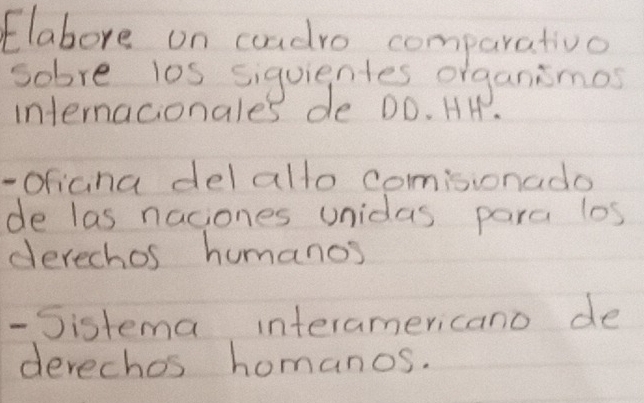 Elabore un cuadro comparativo
sobre los siguientes organismos
internacionales de DD.HH.
-Oficina del alto comisionado
de las naciones unidas para los
derechos humanos
-Sistema interamericano de
derechos homanos.